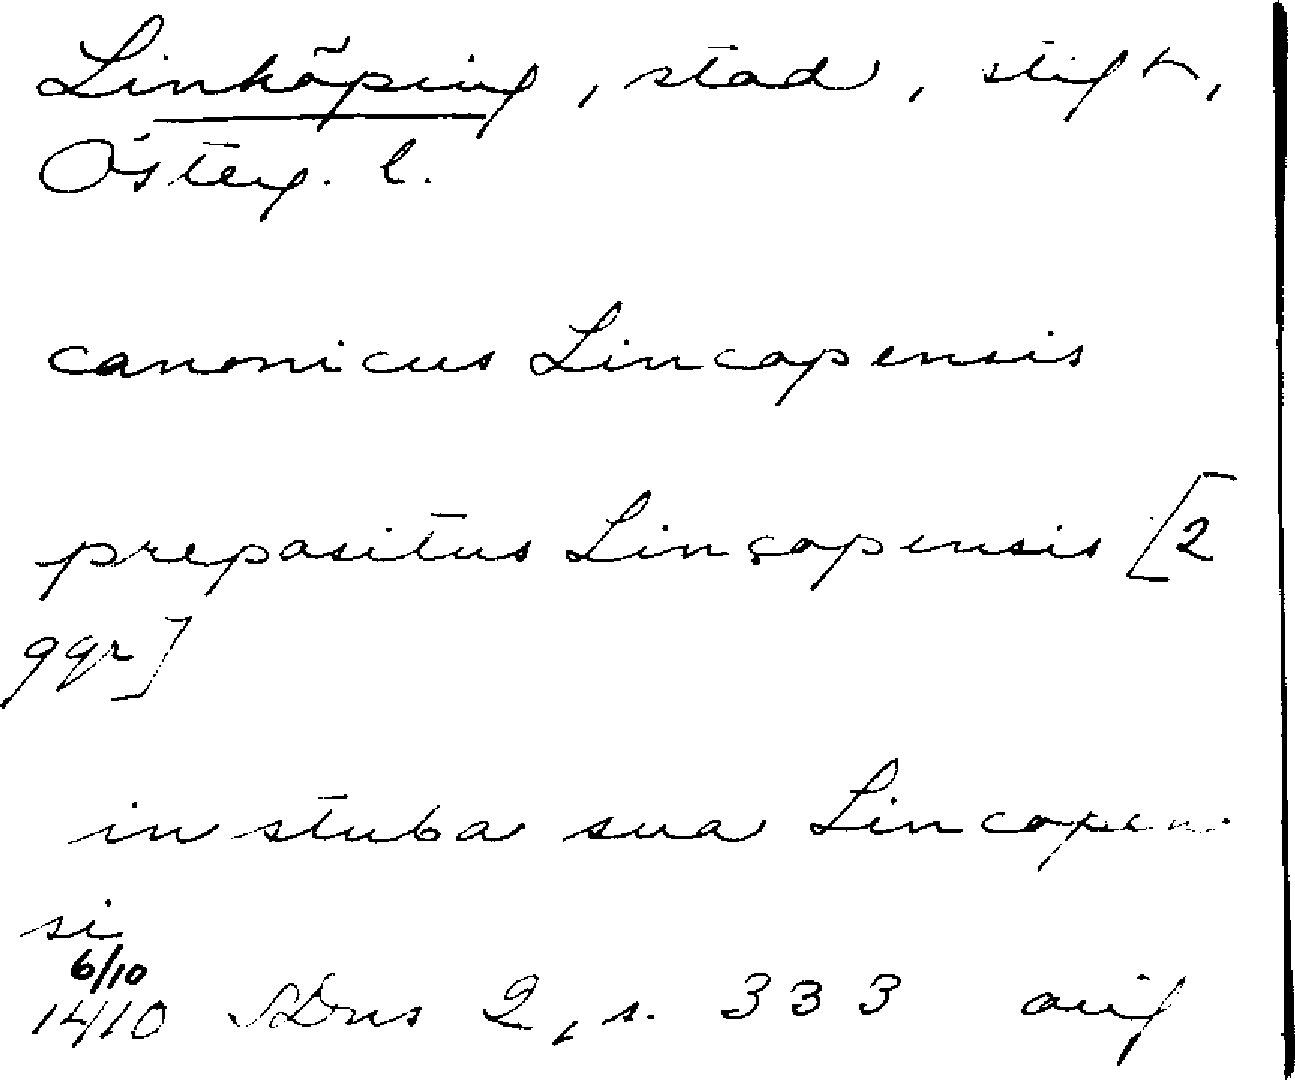 Linköping, stad, stift,
Österg. l.
canonicus Lincopensis
prepositus Lincopensis [2
ggr]
in stuba sua Lincopen
si
6/10
1410 SDns 2, s. 333 orig